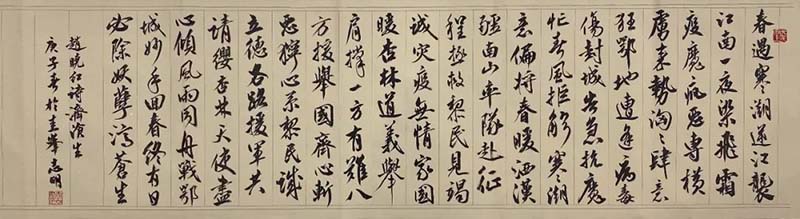 春遇寒潮逆江襲
江南一夜染飛霜
瘟魔疯惡專横
虐来勢洶洶肆意
狂鄂地連逢病毒
傷封城告急抗魔
忙春風拒解寒潮
意偏将春暖洒漢
疆南山車隊赴征
程拯救黎民見竭
誠灾疫無情家國
暖杏林道義舉
肩撑一方有難八
方援舉國齊心斬
惡獰心系黎民誠
立德各路援軍共
請纓杏林天使盡
心傾風雨同舟戰鄂
城妙手回春終有日
必除妖孽濟蒼生
趙曉紅詩濟生
庚子春於圭峰志明